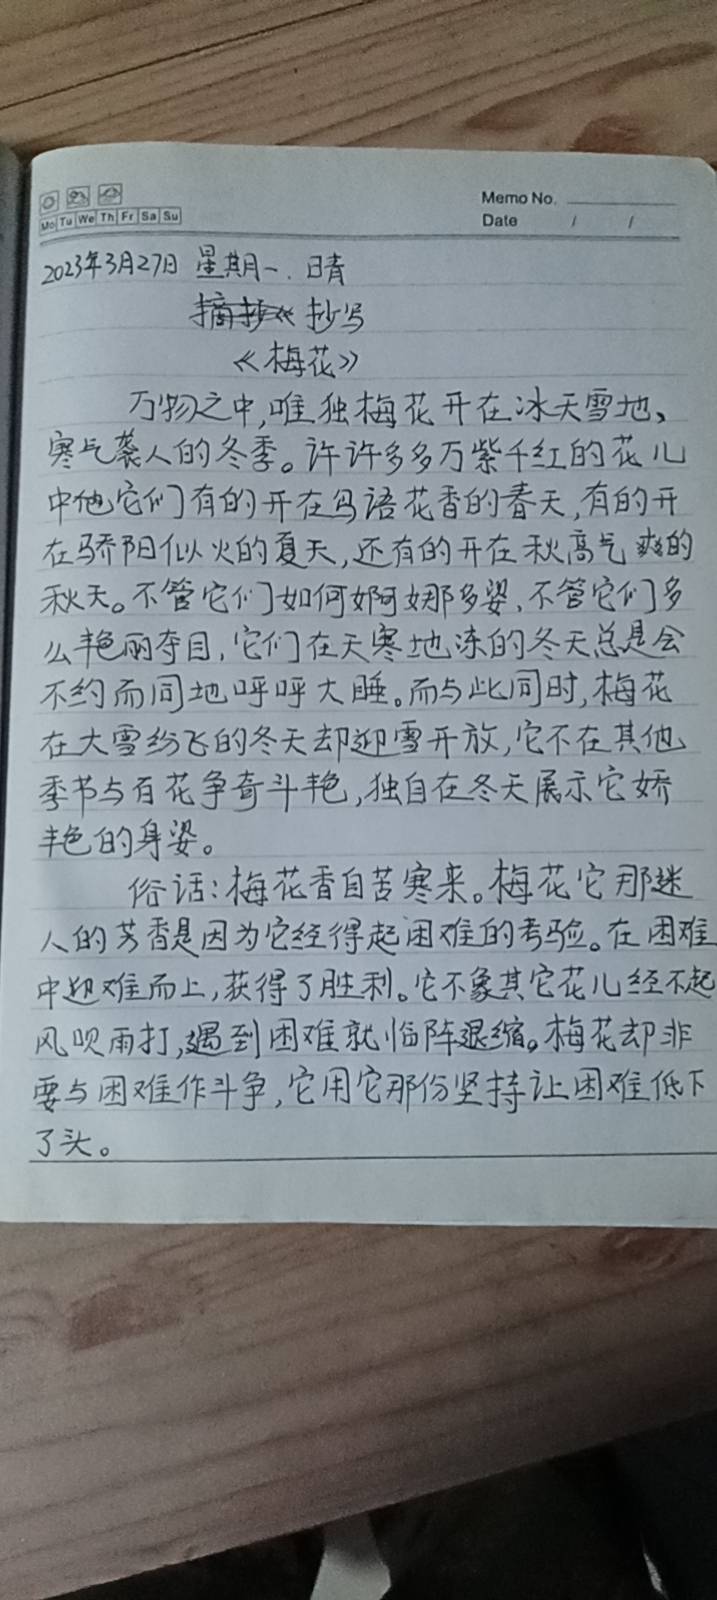 Memo No.
Mo Tu We Th Fr Sa Su
Date / /
2023年3月27日 星期一. 晴
摘抄《 抄写
《梅花》
万物之中,唯独梅花开在冰天雪地、
寒气袭人的冬季。许许多多万紫千红的花儿
中他它们有的开在鸟语花香的春天,有的开
在骄阳似火的夏天,还有的开在秋高气爽的
秋天。不管它们如何婀娜多姿,不管它们多
么艳丽夺目,它们在天寒地冻的冬天总是会
不约而同地呼呼大睡。而与此同时,梅花
在大雪纷飞的冬天却迎雪开放,它不在其他
季节与百花争奇斗艳,独自在冬天展示它娇
艳的身姿。
俗话:梅花香自苦寒来。梅花它那迷
人的芳香是因为它经得起困难的考验。在困难
中迎难而上,获得了胜利。它不象其它花儿经不起
风吹雨打,遇到困难就临阵退缩。梅花却非
要与困难作斗争,它用它那份坚持让困难低下
了头。